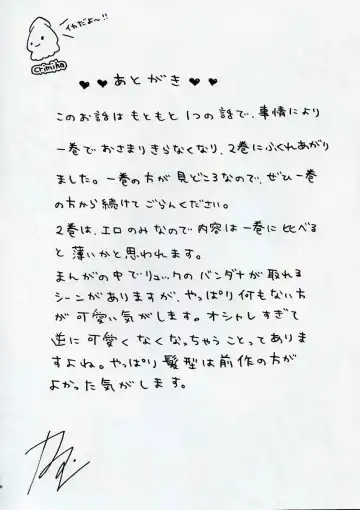 イカだよ〜!!
crimina
♥♥あとがき♥♥
このお話はもともと1つの話で、事情により
一巻でおさまりきらなくなり、2巻にふくれあがり
ました。一巻の方が見どころなので、ぜひ一巻
の方から続けてごらんください。
2巻は、エロのみなので内容は一巻に比べる
と薄いかと思われます。
まんがの中でリュックのバンダナが取れる
シーンがありますが、やっぱり何もない方
が可愛い気がします。オシャレしすぎて
逆に可愛くなくなっちゃうことってありま
すよね。やっぱり髪型は前作の方が
よかった気がします。